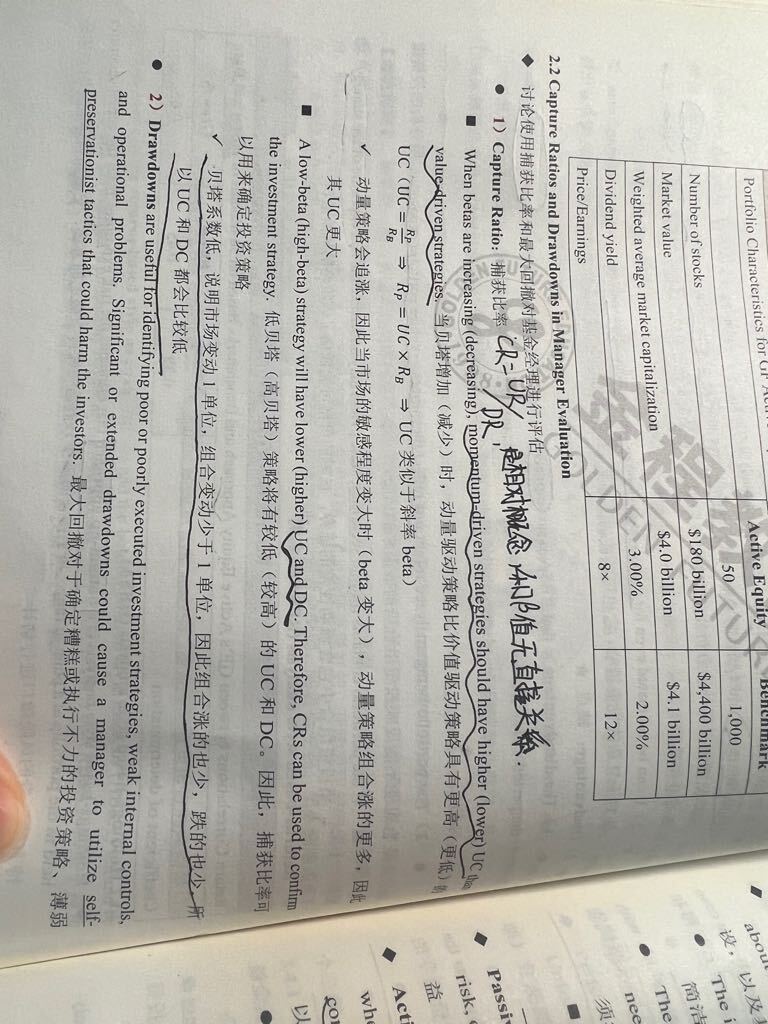 Portfolio Characteristics for GP
Active Equity
Benchmark
Number of stocks 50 1,000
Market value $180 billion $4,400 billion
Weighted average market capitalization $4.0 billion $4.1 billion
Dividend yield 3.00% 2.00%
Price/Earnings 8× 12×
2.2 Capture Ratios and Drawdowns in Manager Evaluation
◆ 讨论使用捕获比率和最大回撤对基金经理进行评估
● 1) Capture Ratio: 捕获比率 CR=UR/DR, 是相对概念, 和β值无直接关系.
■ When betas are increasing (decreasing), momentum-driven strategies should have higher (lower) UC than
value-driven strategies. 当贝塔增加(减少)时,动量驱动策略比价值驱动策略具有更高(更低)的
UC (UC = R_P/R_B ⇒ R_P = UC × R_B ⇒ UC 类似于斜率 beta)
✓ 动量策略会追涨,因此当市场的敏感程度变大时(beta 变大),动量策略组合涨的更多,因此
其 UC 更大
■ A low-beta (high-beta) strategy will have lower (higher) UC and DC. Therefore, CRs can be used to confirm
the investment strategy. 低贝塔(高贝塔)策略将有较低(较高)的 UC 和 DC。因此,捕获比率可
以用来确定投资策略
✓ 贝塔系数低,说明市场变动 1 单位,组合变动少于 1 单位,因此组合涨的也少,跌的也少,所
以 UC 和 DC 都会比较低
● 2) Drawdowns are useful for identifying poor or poorly executed investment strategies, weak internal controls,
and operational problems. Significant or extended drawdowns could cause a manager to utilize self-
preservationist tactics that could harm the investors. 最大回撤对于确定糟糕或执行不力的投资策略、薄弱
■ about
设,以及
● The i
简洁
● The
nee
须
■
◆ Passiv
risk,
益
◆ Acti
whe
con
以
●